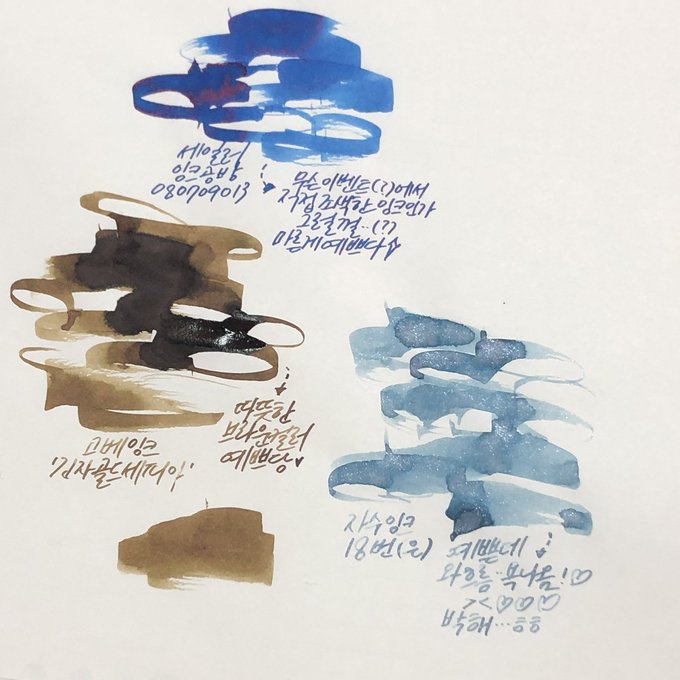 세일러
잉크공방
080709013
무슨 이벤트(?)에서
직접 조색한 잉크인가
그럴걸..(?)
마른게 예쁘다
따뜻한
브라운컬러
예쁘당♥
고베잉크
'긴자골드세피아'
자수잉크
18번(은)
예쁜데
와 흐름..복나옴!♡
><♡♡♡
박해...ㅎㅎ